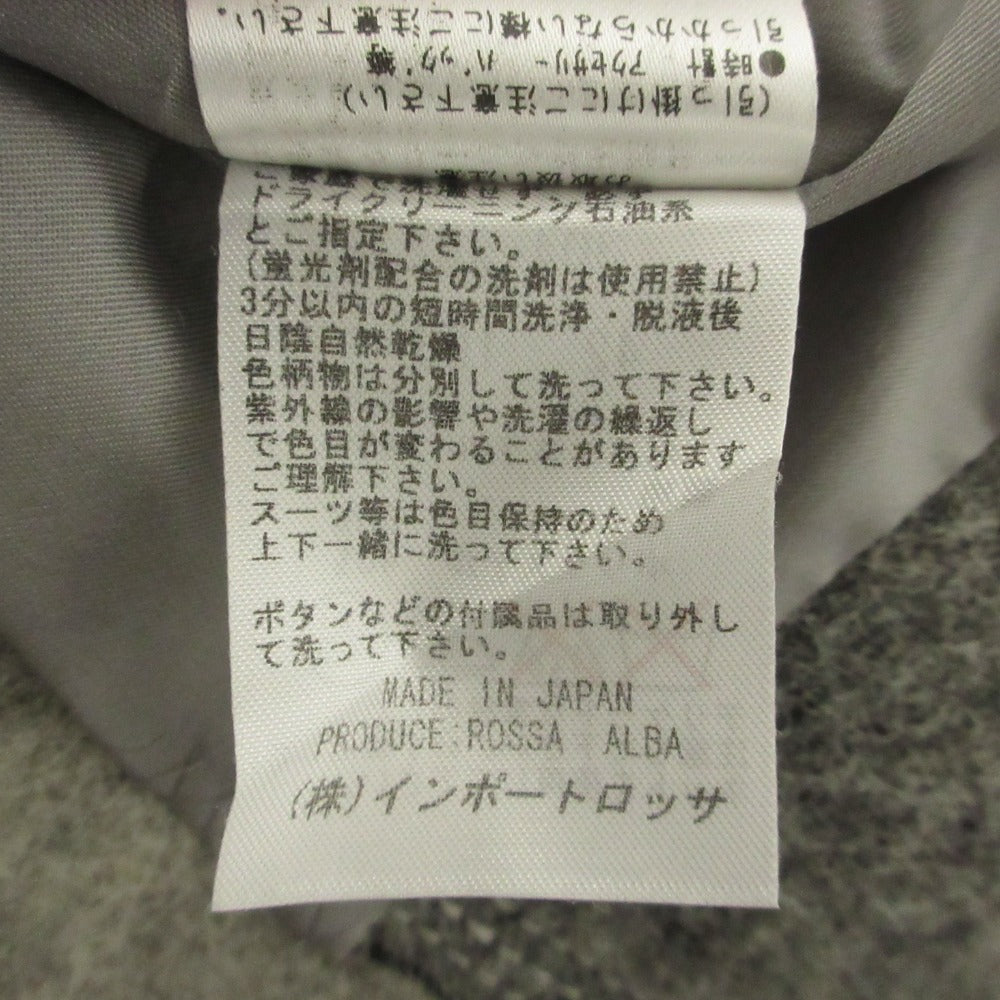 引っかからない様にご注意下さい。
●時計 アクセサリー バッグ等
(引っ掛けにご注意下さい)
お取扱い注意
ドライクリーニング石油系
とご指定下さい。
(蛍光剤配合の洗剤は使用禁止)
3分以内の短時間洗浄・脱液後
日陰自然乾燥
色柄物は分別して洗って下さい。
紫外線の影響や洗濯の繰返し
で色目が変わることがあります
ご理解下さい。
スーツ等は色目保持のため
上下一緒に洗って下さい。
ボタンなどの付属品は取り外し
て洗って下さい。
MADE IN JAPAN
PRODUCE:ROSSA ALBA
(株)インポートロッサ